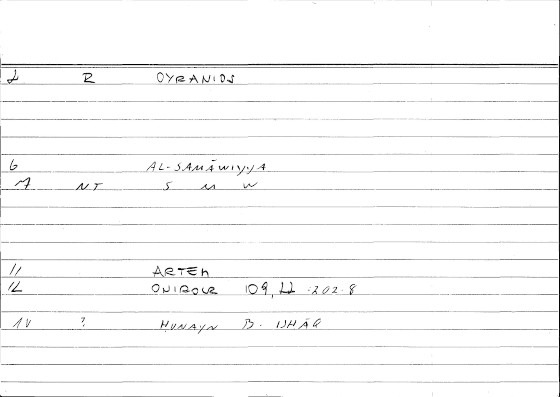 2 R OYRANIOS
6 AL-SAMĀWIYYA
7 NT S M W
11 ARTEM
12 ONIROCR 109, 22 202.8
14 ? HUNAYN B. ISHĀQ